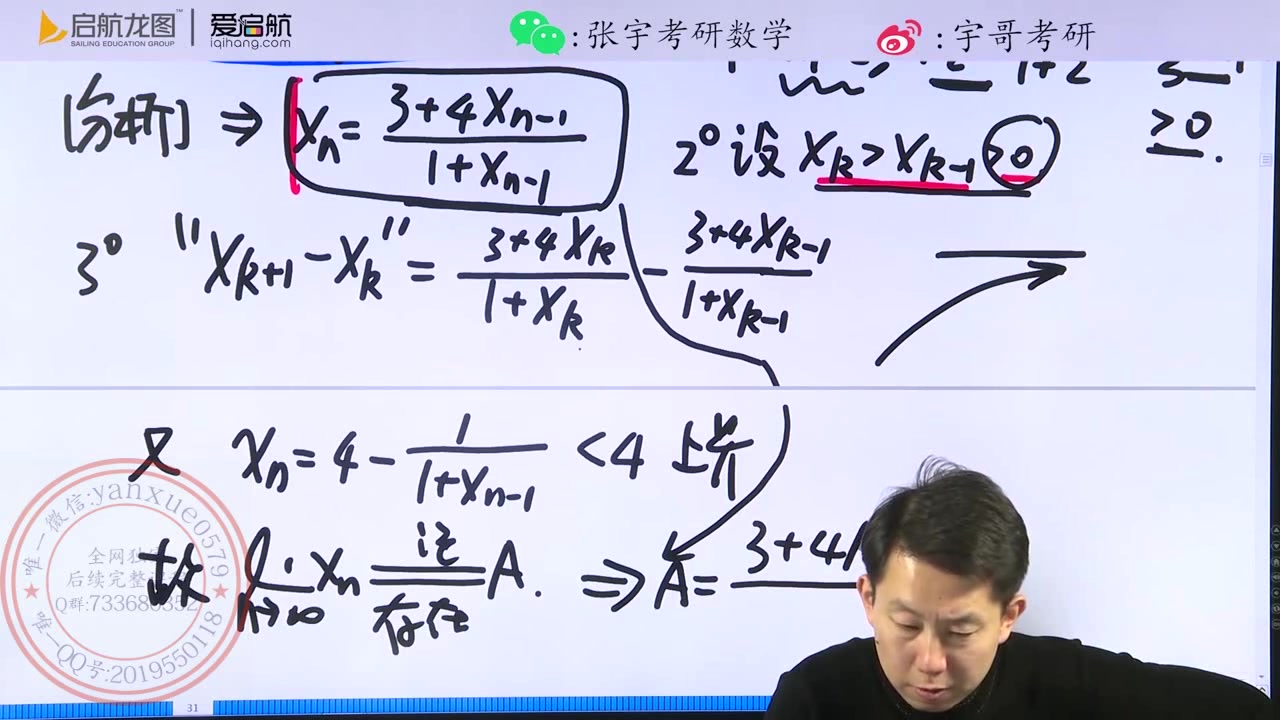 启航龙图 爱启航 :张宇考研数学 :宇哥考研
SAILING EDUCATION GROUP iqihang.com
1+2
[分析] ⇒ xₙ = (3+4xₙ₋₁)/(1+xₙ₋₁)
2° 设 xₖ > xₖ₋₁ >0
>0.
3° "xₖ₊₁ − xₖ" = (3+4xₖ)/(1+xₖ) − (3+4xₖ₋₁)/(1+xₖ₋₁)
又 xₙ = 4 − 1/(1+xₙ₋₁) < 4 上界
故 lim n→∞ xₙ 记 存在 A. ⇒ A = 3+4
唯一微信:yanxue0579
全网独
后续完整
Q群:733680352
唯一QQ号:2019550118
31